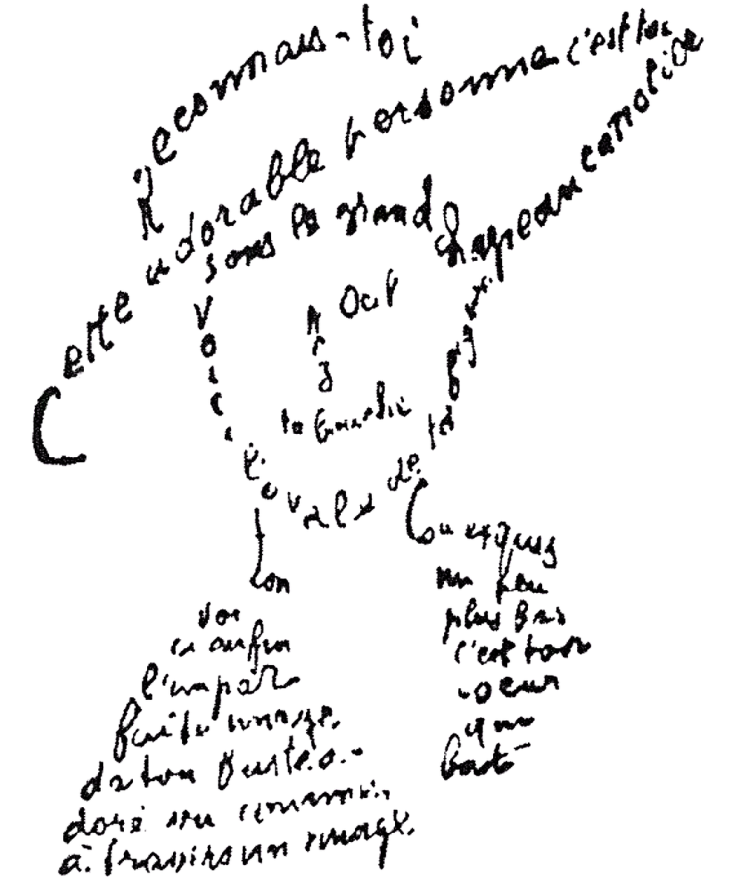 Reconnais-toi
Cette adorable personne c'est toi
sous le grand chapeau canotier
Œil
Nez
ta bouche
Voici l'ovale de ta figure
ton
cou exquis
Voi
ci enfin
l'impar
faite image
de ton buste a
doré vu comme
à travers un nuage
un peu
plus bas
c'est ton
coeur
qui
bat